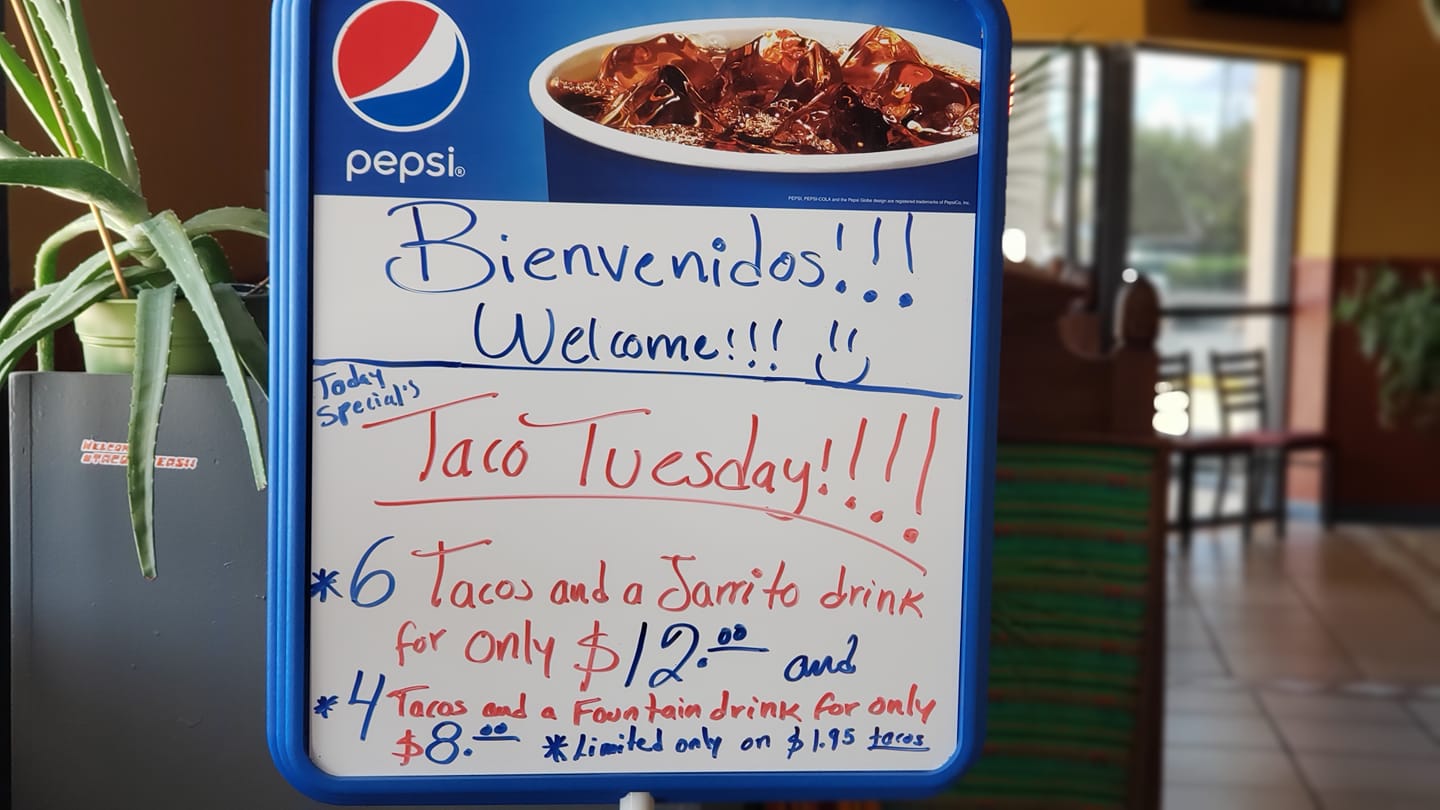 pepsi®
PEPSI, PEPSI-COLA and the Pepsi Globe design are registered trademarks of PepsiCo, Inc.
Bienvenidos!!!
Welcome!!!
Today
Special's
Taco Tuesday!!!!
*6 Tacos and a Jarrito drink
for only $12.00 and
*4 Tacos and a Fountain drink for only
$8.00 *Limited only on $1.95 tacos